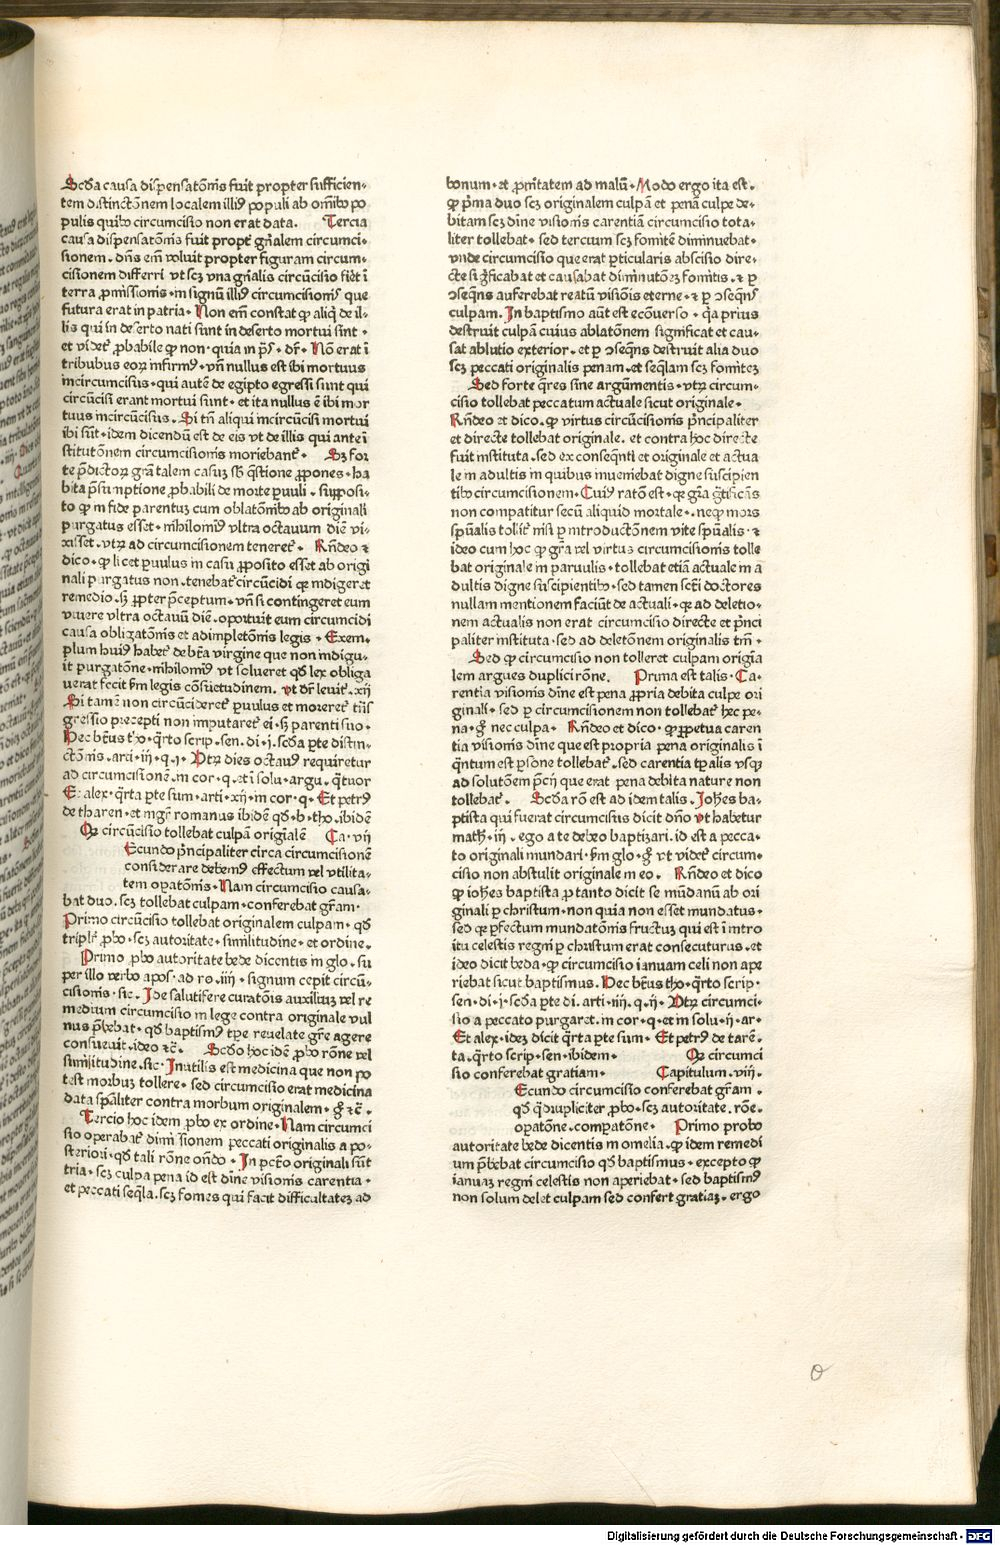 Scd̃a causa dispensatõnis fuit propter sufficien⸗
tem distinctõnem localem illiꝰ populi ab om̃ibo po
pulis quibo circumcisio non erat data. Tercia
causa dispensatõnis fuit propt̃ gñalem circumci⸗
sionem. dñs em̃ voluit propter figuram circum⸗
cisionem differri vt scꝫ vna gñalis circũcisio fier̃t ĩ
terra ꝓmissionis. in signũ illiꝰ circumcisionis que
futura erat in patria. Non em̃ constat ꝙ aliq̃ de il⸗
lis qui in deserto nati sunt in deserto mortui sint.
et videt̃ ꝓbabile ꝙ non. quia in p̃s. dr̃. Nõ erat ĩ
tribubus eoꝝ infirmꝰ. vñ nullus est ibi mortuus
incircumcisus. qui autẽ de egipto egressi sunt qui
circũcisi erant mortui sunt. et ita nullus ẽ ibi mor
tuus incircũcisus. Si tñ aliqui incircũcisi mortui
ibi sũt. idem dicendũ est de eis vt de illis qui ante ĩ
stitutõnem circumcisionis moriebant̃. Sꝫ for
te p̃dictoꝝ gr̃a talem casuꝫ sb̃ q̃stione ꝓpones. ha
bita p̃sumptione ꝓbabili de morte ꝑuuli. supposi⸗
to ꝙ in fide parentuꝫ cum oblatõnibo ab originali
purgatus esset. nihilominꝰ vltra octauum diẽ vi⸗
xisset. vtꝝ ad circumcisionem teneret̃. Rñdeo ⁊
dico. ꝙ licet ꝑuulus in casu ꝓposito esset ab origi
nali purgatus non tenebat̃ circũcidi ꝙ indigeret
remedio. sꝫ ꝓpter p̃ceptum. vñ si contingeret eum
viuere vltra octauũ diẽ. oportuit eum circumcidi
causa obligatõnis et adimpletõnis legis. Exem⸗
plum huiꝰ habet̃ de bt̃a virgine que non indigu⸗
it purgatõne. nihilominꝰ vt solueret qd̃ lex obliga
uerat fecit ẜm legis cõsuetudinem. vt dr̃ leuit̃. xij
Si tamẽ non circũcideret̃ ꝑuulus et moreret̃ trãs
gressio precepti non imputaret̃ ei. sꝫ parenti suo.
Hec bt̃us tho. q̃rto scrip. sen. di. j. scd̃a ꝑte distin⸗
ctõnis. arti. iij. q. j. Vtꝝ dies octauꝰ requiretur
ad circumcisionẽ. in cor. q. et ĩ solu. argu. q̃tuor
Et alex. q̃rta ꝑte sum. arti. xij. in cor. q. Et petrꝰ
de tharen. et mgr̃ romanus ibidẽ qd̃. b. tho. ibidẽ
Qꝫ circũcisio tollebat culpã originalẽ Ca. vij
Ecundo p̃ncipaliter circa circumcisionẽ
considerare debemꝰ effectum vel vtilita⸗
tem oꝑatõnis. Nam circumcisio causa⸗
bat duo. scꝫ tollebat culpam. conferebat gr̃am.
Primo circũcisio tollebat originalem culpam. qd̃
triplr̃ ꝓbo. scꝫ autoritate. similitudine. et ordine.
Primo ꝓbo autoritate bede dicentis in glo. su
per illo verbo apos. ad ro. iiij. signum cepit circũ⸗
cisionis. sic. Ide salutifere curatõis auxiliuꝫ vel re
medium circumcisio in lege contra originale vul
nus p̃bebat. qd̃ baptismꝰ tp̃e reuelate gr̃e agere
consueuit. ideo ⁊c̃. Scd̃o hoc idẽ ꝓbo rõne vel
similitudine. sic. Inutilis est medicina que non po
test morbuꝫ tollere. sed circumcisio erat medicina
data sp̃aliter contra morbum originalem. g̃ ⁊c̃.
Tercio hoc idem ꝓbo ex ordine. Nam circumci
sio operabat̃ diminsionem peccati originalis a po⸗
steriori. qd̃ tali rõne ondo. In pct̃o originali sũt
tria. scꝫ culpa pena id est dñe visionis carentia.
et peccati seq̃la. scꝫ fomes qui facit difficultateꝫ ad
bonum. et ꝓnitatem ad malũ. Modo ergo ita est.
ꝙ p̃ma duo scꝫ originalem culpã et penã culpe de⸗
bitam scꝫ dine visionis carentiã circumcisio tota⸗
liter tollebat. sed tercium scꝫ fomitẽ diminuebat.
vnde circumcisio que erat ꝑticularis abscisio dire⸗
cte sig̃ficabat et causabat diminutõꝫ fomitis. ⁊ ꝑ
ꝯseq̃ns auferebat reatũ visiõis eterne. ⁊ ꝑ ꝯseq̃ns
culpam. In baptismo aũt est ecõuerso. q̃a prius
destruit culpã cuius ablatõnem significat et cau⸗
sat ablutio exterior. et ꝑ ꝯseq̃ns destruit alia duo
scꝫ peccati originalis penam. et seq̃lam scꝫ fomiteꝫ
Sed forte q̃res sine argumentis. vtꝝ circum⸗
cisio tollebat peccatum actuale sicut originale.
Rñdeo et dico. ꝙ virtus circũcisionis p̃ncipaliter
et directe tollebat originale. et contra hoc directe
fuit instituta. sed ex conseq̃nti et originale et actua
le in adultis in quibus inueniebat digne suscipien
tibo circumcisionem. Cuiꝰ ratõ est. qꝛ gr̃a g̃tificãs
non compatitur secũ aliquid mortale. neqꝫ mors
spũalis tollit̃ nisi ꝑ introductõnem vite spũalis. ⁊
ideo cum hoc ꝙ gr̃a vel virtus circumcisionis tolle
bat originale in paruulis. tollebat etiã actuale in a
dultis digne suscipientibo. sed tamen scti doctores
nullam mentionem faciũt de actuali. qꝛ ad deletio⸗
nem actualis non erat circumcisio directe et p̃nci
paliter instituta. sed ad deletõnem originalis tm̃.
Sed ꝙ circumcisio non tolleret culpam origĩa
lem argues duplici rõne. Prima est talis. Ca⸗
rentia visionis dĩne est pena ꝓpria debita culpe ori
ginali. sed ꝑ circumcisionem non tollebat̃ hec pe⸗
na. g̃ nec culpa. Rñdeo et dico. ꝙ ꝑpetua caren
tia visionis dĩne que est propria pena originalis ĩ
q̃ntum est ꝑsone tollebat̃. sed carentia tp̃alis vsqꝫ
ad solutõem p̃cij que erat pena debita nature non
tollebat̃. Scd̃a rõ est ad idem talis. Joh̃es ba⸗
ptista qui fuerat circumcisus dicit dño vt habetur
math̃. iij. ego a te debeo baptizari. id est a pecca⸗
to originali mundari. ẜm glo. g̃ vt videt̃ circum⸗
cisio non abstulit originale in eo. Rñdeo et dico
ꝙ ioh̃es baptista ꝓ tanto dicit se mũdanũ ab ori
ginali ꝑ christum. non quia non esset mundatus.
sed qꝛ ꝑfectum mundatõnis fructuꝫ qui est ĩ intro
itu celestis regni ꝑ christum erat consecuturus. et
ideo dicit beda. ꝙ circumcisio ianuam celi non ape
riebat sicut baptismus. Hec bt̃us tho. q̃rto scrip.
sen. di. j. scd̃a ꝑte di. arti. iiij. q. ij. Vtꝝ circumci⸗
sio a peccato purgaret. in cor. q. et in solu. ij. ar.
Et alex. ideꝫ dicit q̃rta ꝑte sum. Et petrꝰ de tarẽ.
ta. q̃rto scrip. sen. ibidem. Qꝫ circumci
sio conferebat gratiam. Capitulum. viij.
Ecundo circumcisio conferebat gr̃am.
qd̃ q̃drupliciter ꝓbo. scꝫ autoritate. rõe.
oꝑatõne. comꝑatõne. Primo probo
autoritate bede dicentis in omelia. ꝙ idem remedi
um p̃bebat circumcisio qd̃ baptismus. excepto ꝙ
ianuaꝫ regni celestis non aperiebat. sed baptismꝰ
non solum delet culpam sed confert gratiaꝫ. ergo
o
Digitalisierung gefördert durch die Deutsche Forschungsgemeinschaft - DFG